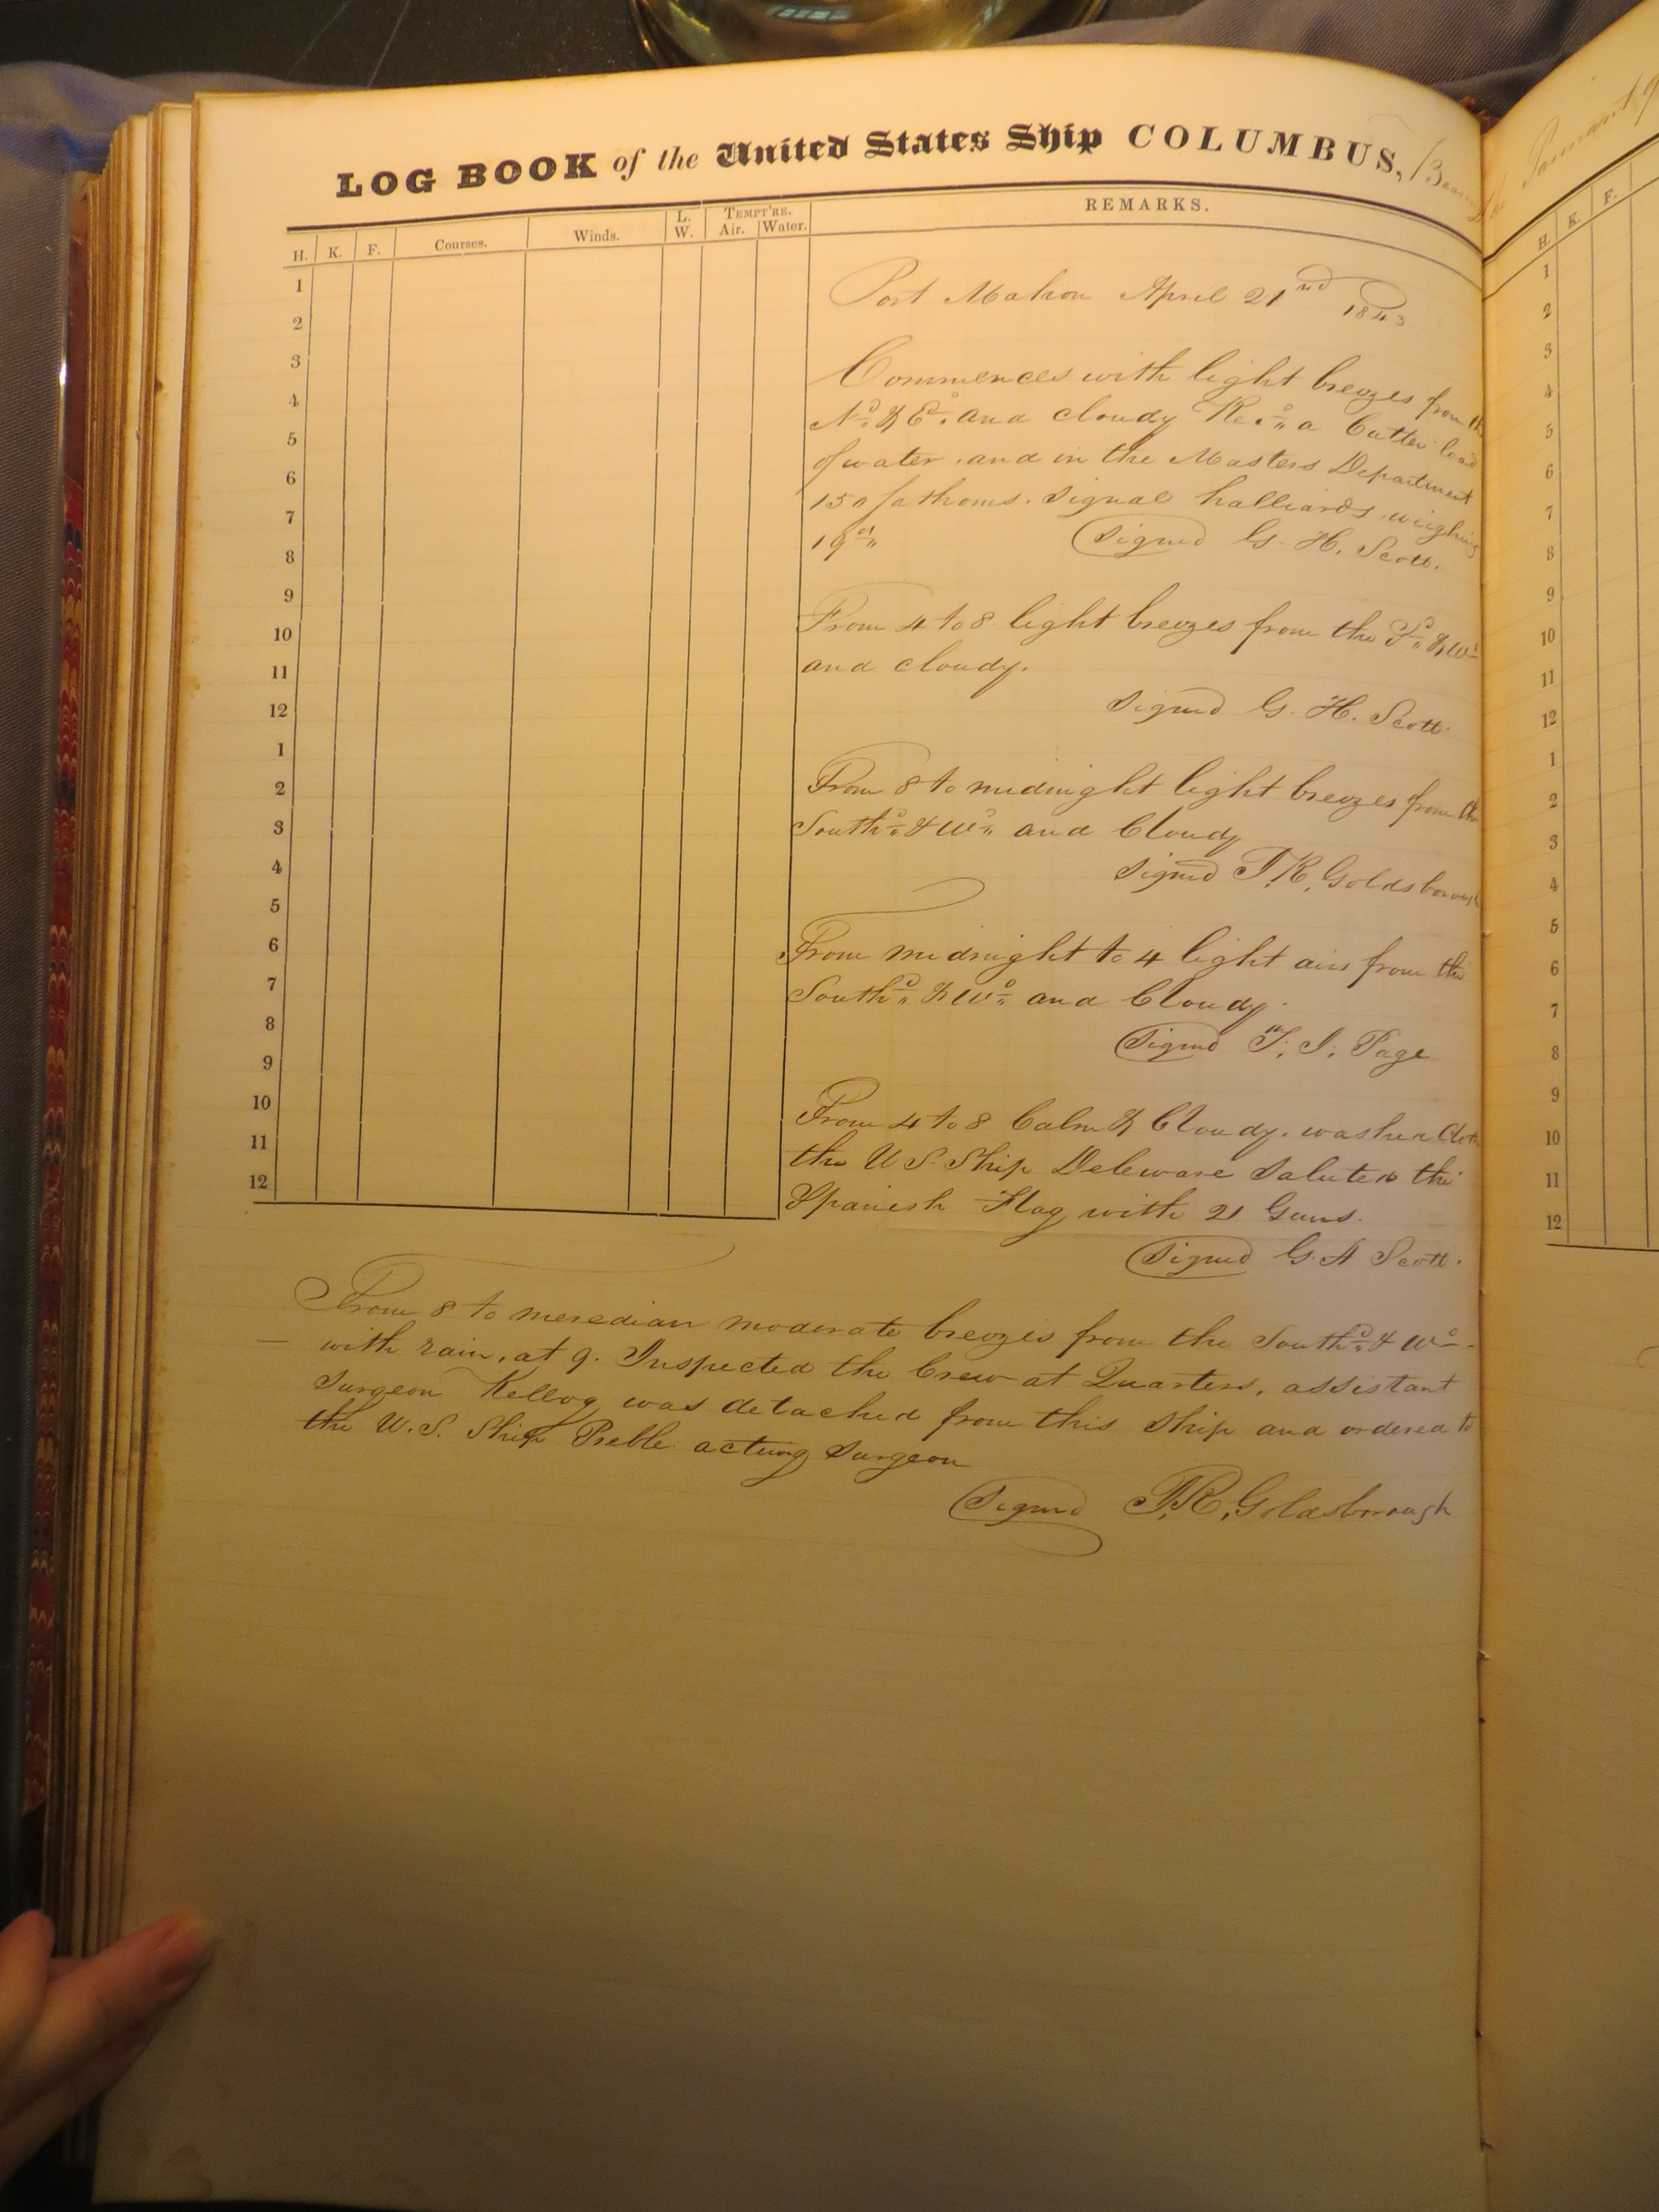 LOG BOOK of the United States Ship COLUMBUS,
H. K. F. Courses. Winds. L. W. TEMPT'RE. Air. Water. REMARKS.
1
2
3
4
5
6
7
8
9
10
11
12
1
2
3
4
5
6
7
8
9
10
11
12
Port Mahon April 21nd 1843
Commences with light breezes from the
Nd & Ed and cloudy Recd a Cutter load
of water. and in the Masters Department
150 fathoms. Signal halliards weighing
19
Signed G. H. Scott.
From 4 to 8 light breezes from the Sd & Wd
and cloudy.
Signed G. H. Scott
From 8 to midnight light breezes from the
Southd & Wd and Cloudy
Signed J.R. Goldsborough
From midnight to 4 light airs from the
Southd & Wd and Cloudy.
Signed T. J. Page
From 4 to 8 Calm & Cloudy. washed Cloth
the U S. Ship Deleware Saluted the
Spanish Flag with 21 Guns.
Signed G. H Scott.
From 8 to meredian moderate breezes from the Southd & Wd
with rain, at 9. Inspected the Crew at Quarters, assistant
Surgeon Kellog was detached from this Ship and ordered to
the U.S. Ship Preble acting Surgeon
Signed J.R. Goldsborough
H. K. F.
1
2
3
4
5
6
7
8
9
10
11
12
1
2
3
4
5
6
7
8
9
10
11
12